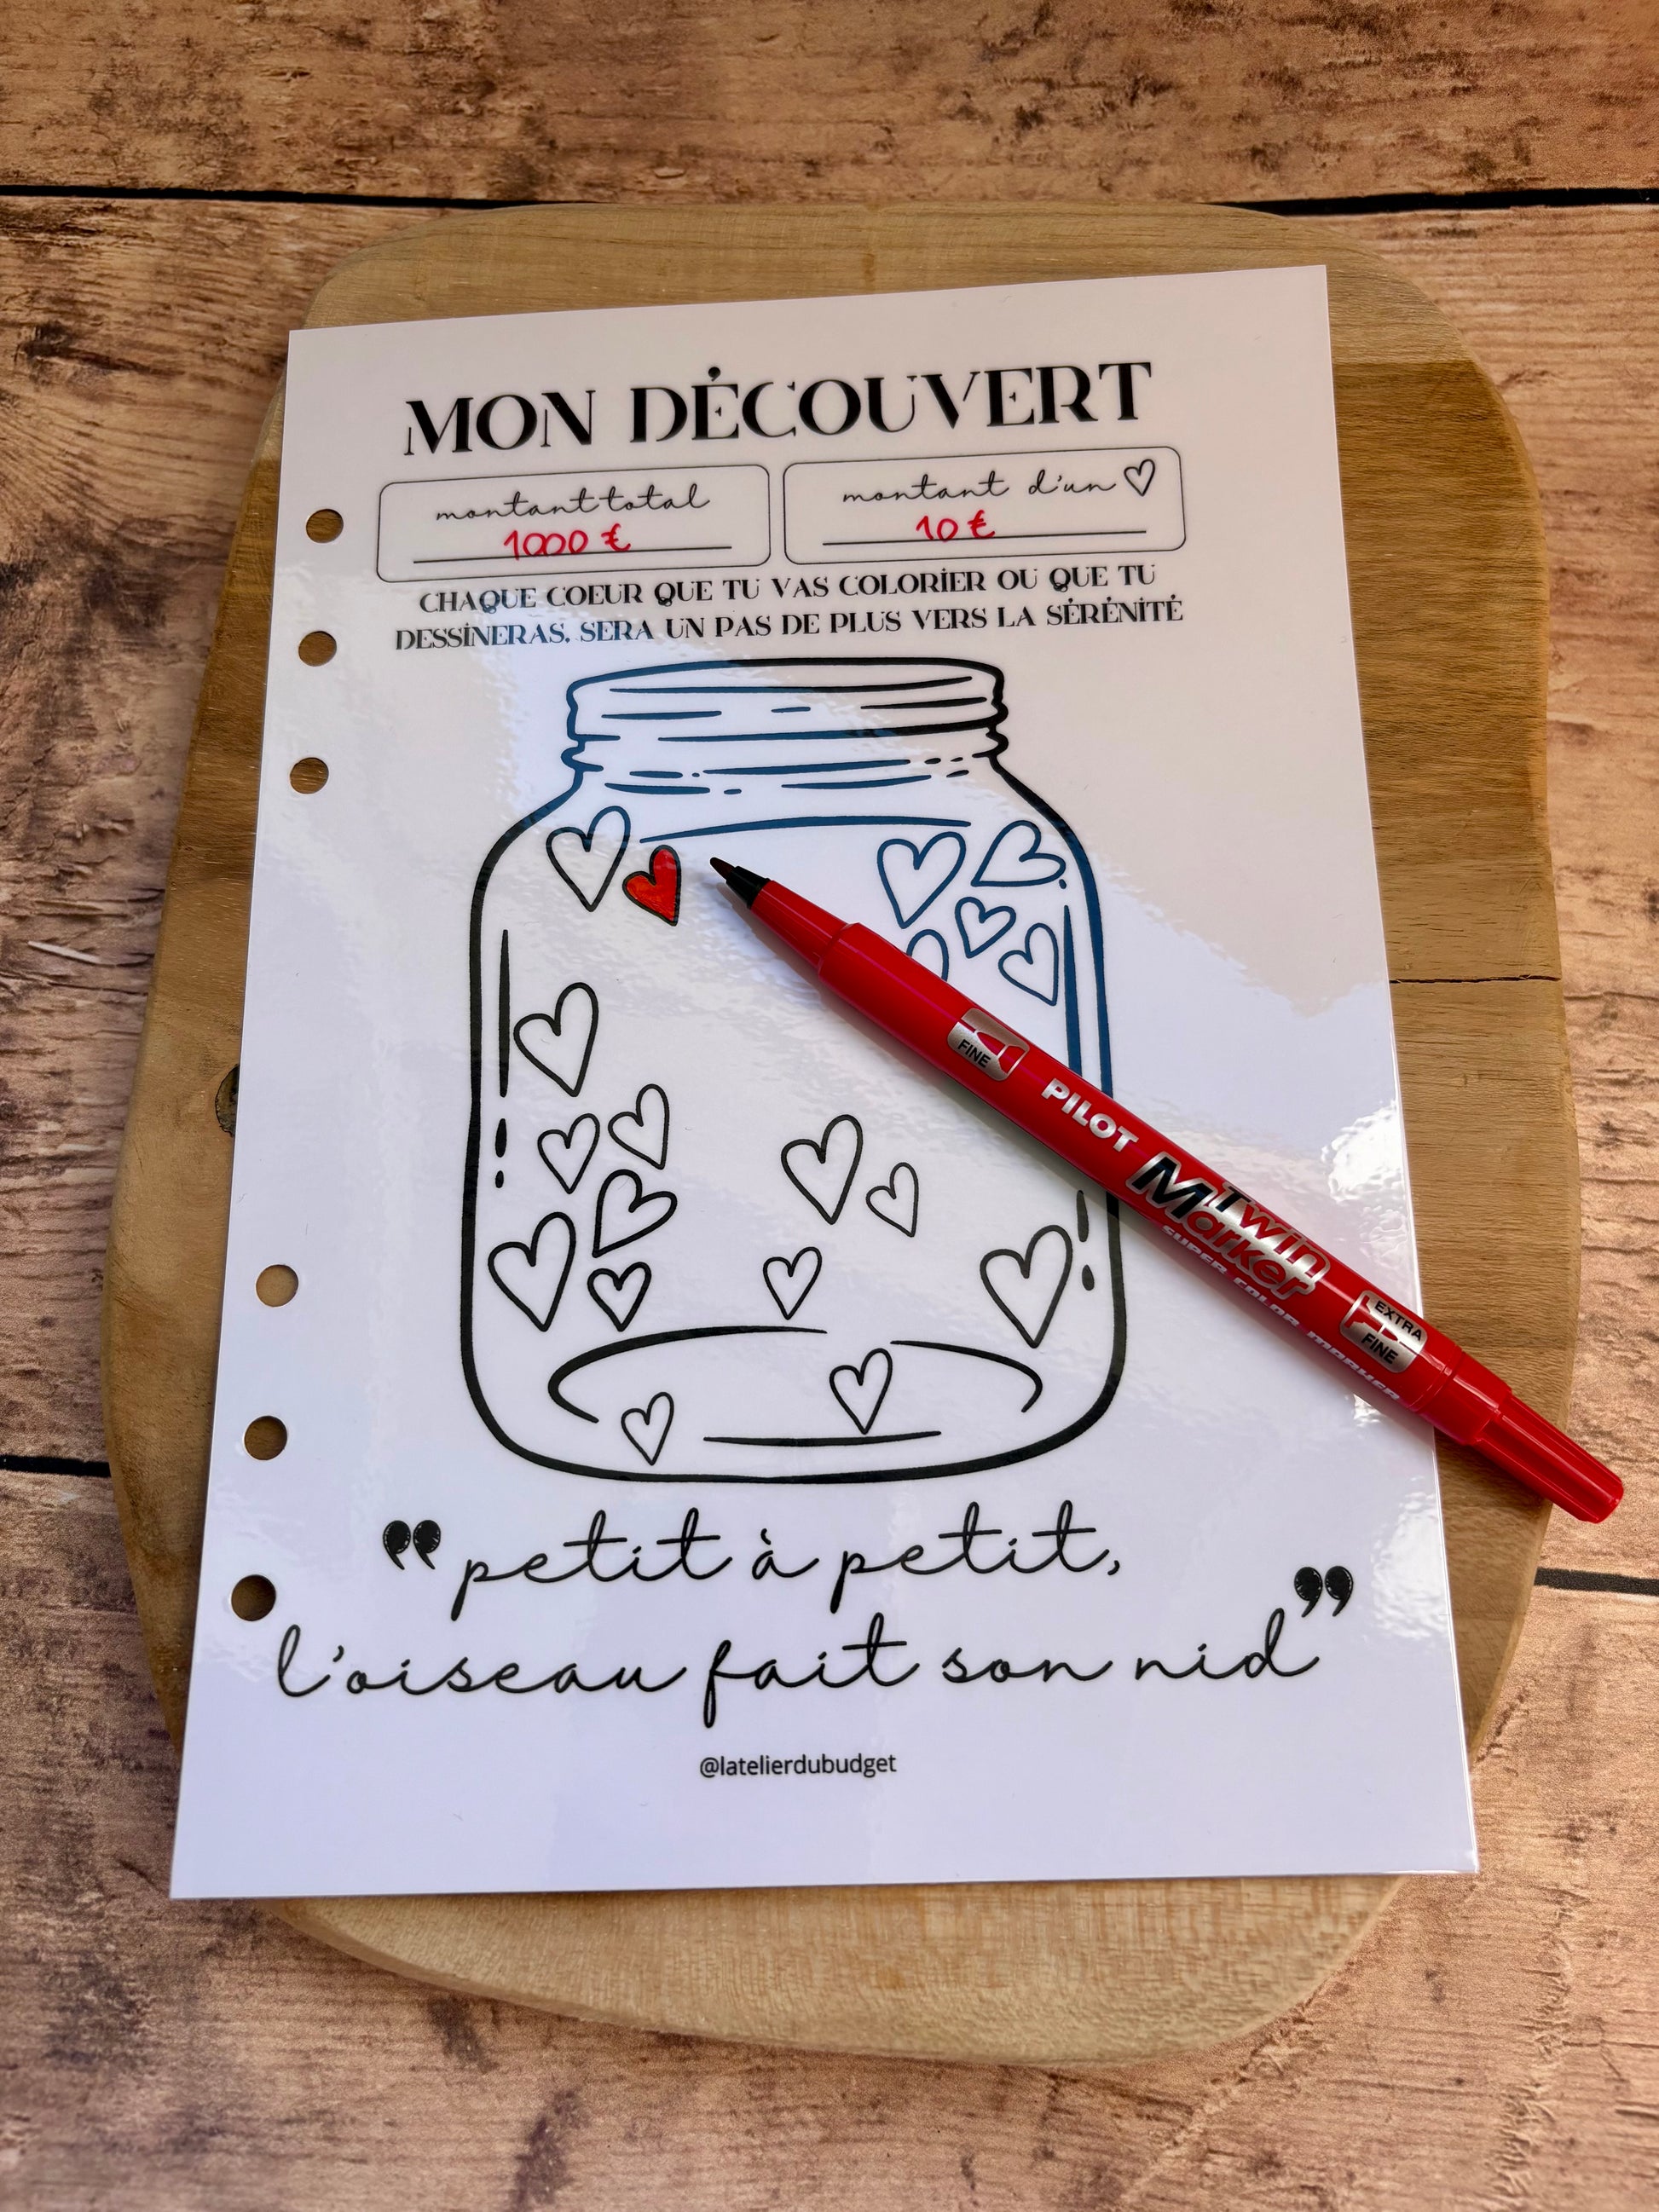 MON DÉCOUVERT
montant total
1000 €
montant d'un ♡
10 €
CHAQUE COEUR QUE TU VAS COLORIER OU QUE TU
DESSINERAS, SERA UN PAS DE PLUS VERS LA SÉRÉNITÉ
FINE
PILOT
Twin
Marker
SUPER COLOR MARKER
EXTRA
FINE
❞petit à petit,
l'oiseau fait son nid❞
@latelierdubudget